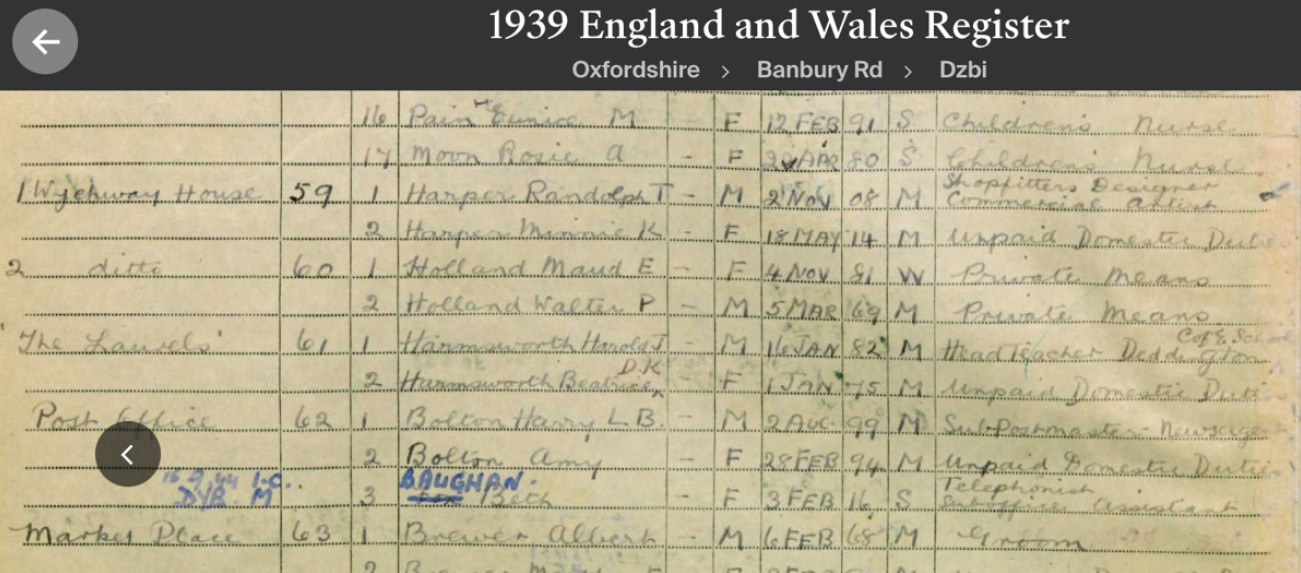 1939 England and Wales Register
Oxfordshire > Banbury Rd > Dzbi
16 Pain Eunice M - F 12 FEB 91 S Children's Nurse
17 Moon Rosie A - F APR 80 S Children's Nurse
Shopfitters Designer
1 Wychway House 59 1 Harper Randolph T - M 2 NOV 08 M Commercial Artist
2 Harper Minnie K - F 18 MAY 14 M Unpaid Domestic Duties
2 ditto 60 1 Holland Maud E - F 4 NOV 81 W Private Means
2 Holland Walter P - M 5 MAR 69 M Private Means
C of E School
'The Laurels' 61 1 Harmsworth Harold J - M 16 JAN 82 M Head Teacher Deddington
D.K
2 Harmsworth Beatrice - F 1 JAN 75 M Unpaid Domestic Duties
Post Office 62 1 Bolton Harry L B. - M 2 AUG 99 M Sub Postmaster - Newsagent
2 Bolton Amy - F 28 FEB 94 M Unpaid Domestic Duties
BAUGHAN. Telephonist
3 Beth - F 3 FEB 16 S Suboffice Assistant
Market Place 63 1 Brewer Albert - M 6 FEB 68 M Groom
2